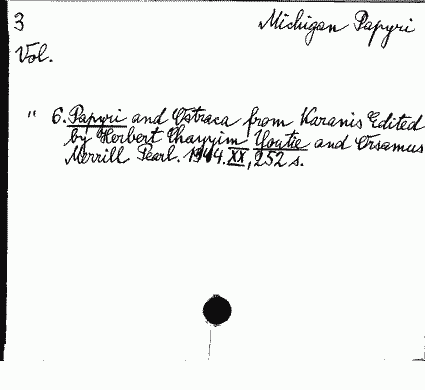 3 Michigan Papyri
Vol.
" 6. Papyri and Ostraca from Karanis Edited
by Herbert Chayyim Youtie and Orsamus
Merrill Pearl. 1944. XX, 252 s.